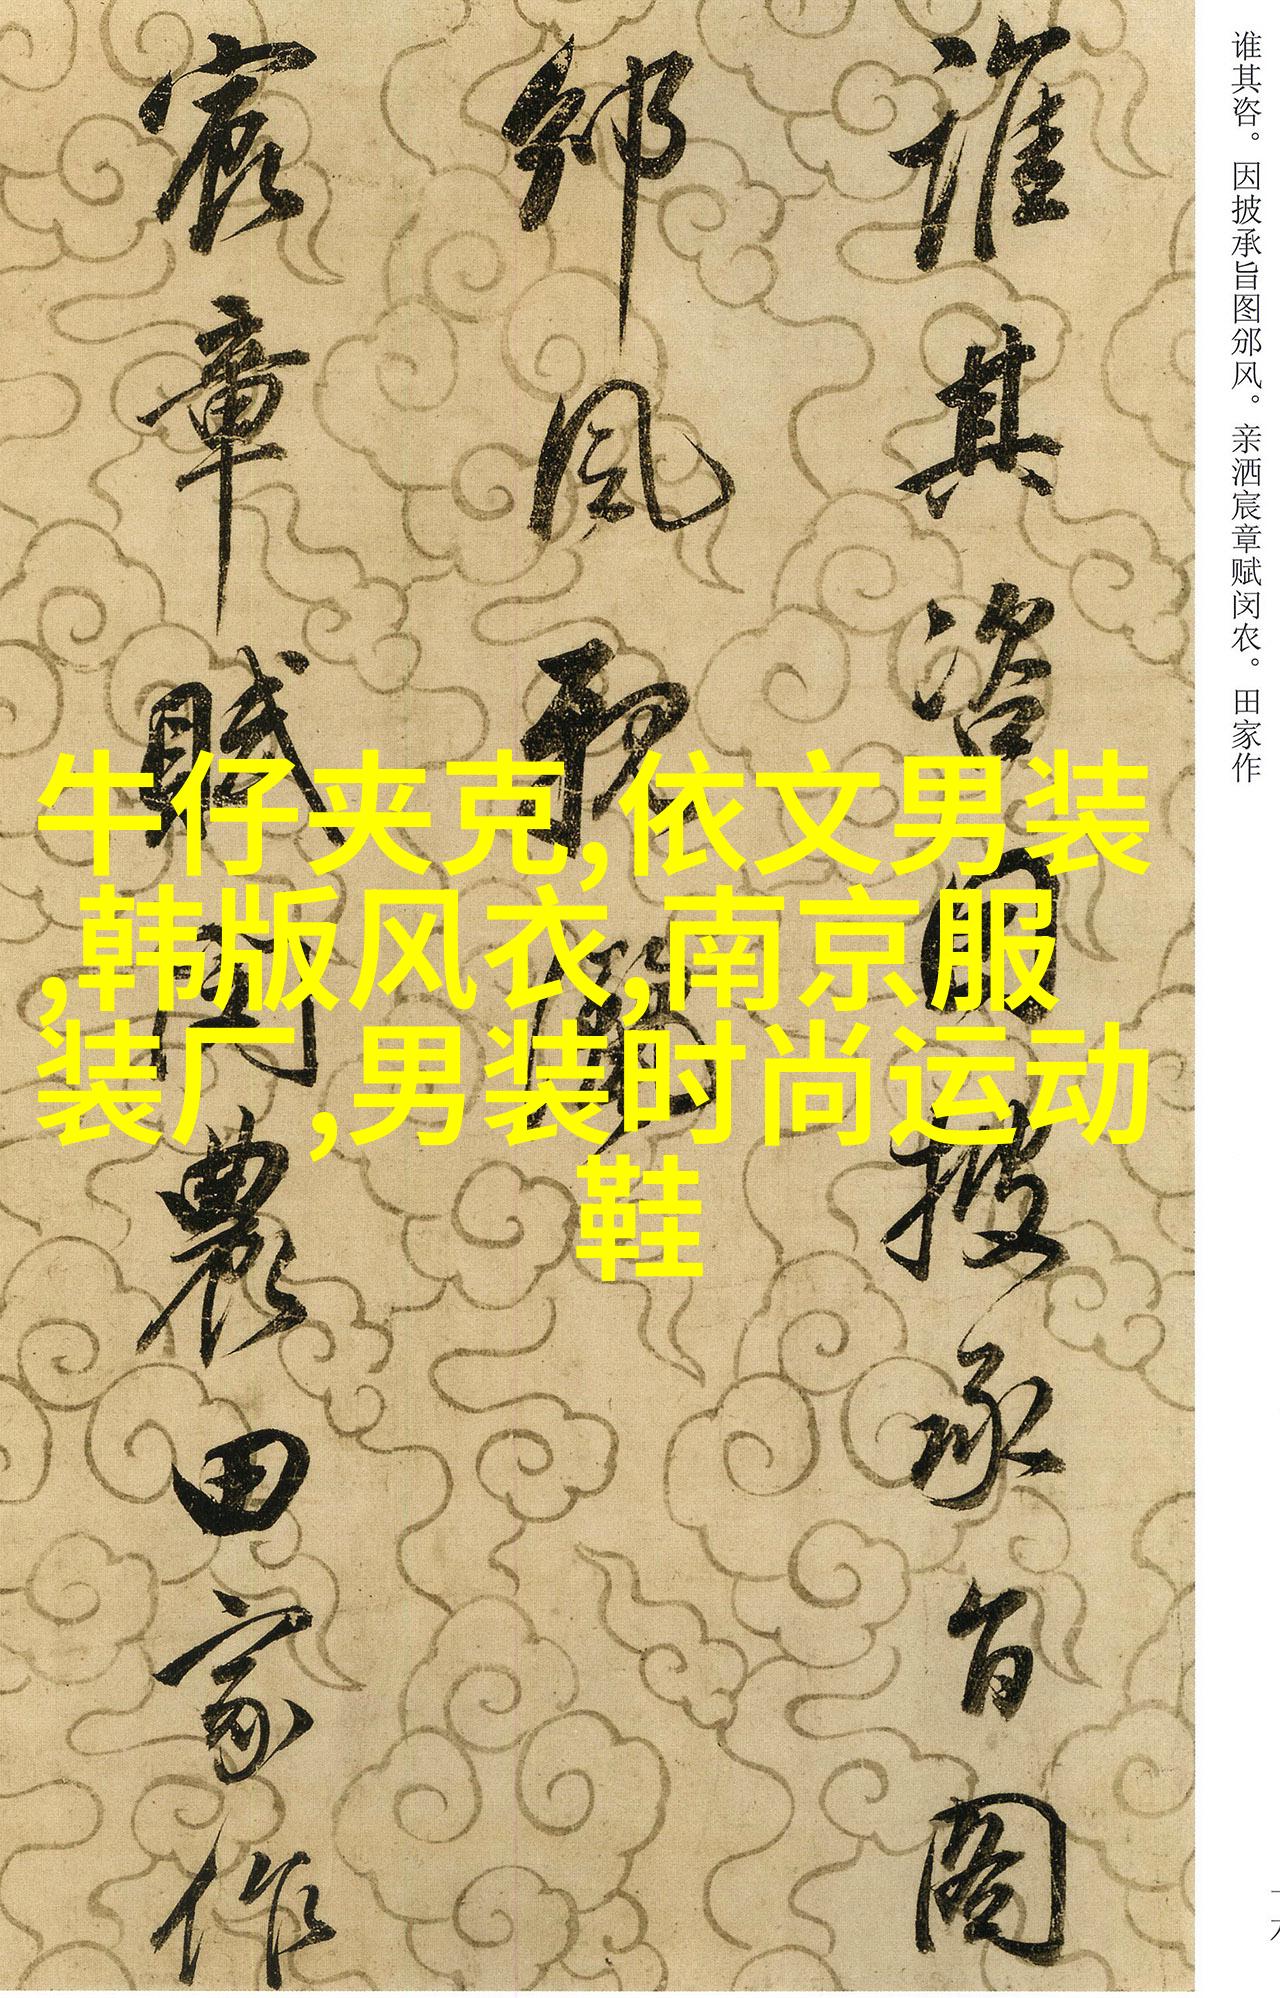 谁其咨。因披承旨图邠风。亲洒宸章赋闵农。田家作
誰其咨因披承旨圖
邠風親灑
宸章賦閔農田家作
牛仔夹克,依文男装
,韩版风衣,南京服
装厂,男装时尚运动
鞋